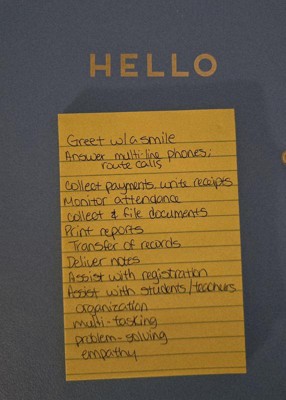 HELLO
Greet w/a smile
Answer multi-line phones;
route calls
Collect payments, write receipts
Monitor attendance
collect & file documents
Print reports
Transfer of records
Deliver notes
Assist with registration
Assist with students/teachers
organization
multi-tasking
problem-solving
empathy